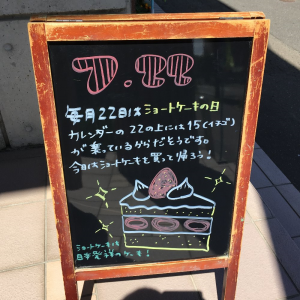 7.22
毎月22日はショートケーキの日
カレンダーの22の上には15(イチゴ)
が乗っているからだそうです。
今日はショートケーキを買って帰ろう!
ショートケーキは
日本発祥のケーキ!